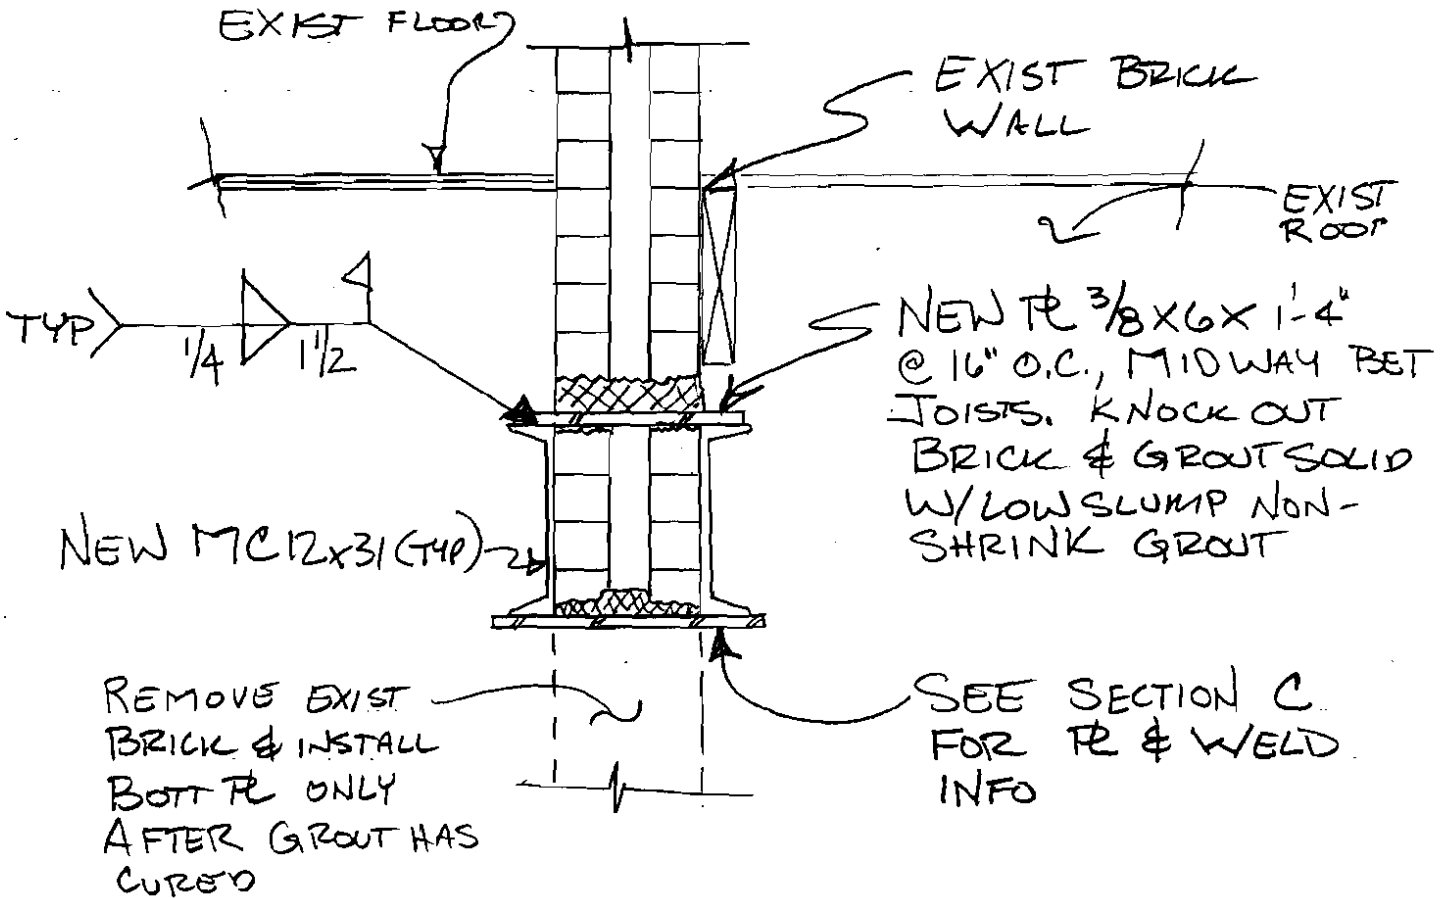 EXIST FLOOR
EXIST BRICK
WALL
EXIST
ROOF
TYP
1/4 1 1/2
NEW PL 3/8 X 6 X 1'-4"
@ 16" O.C., MIDWAY BET
JOISTS. KNOCK OUT
BRICK & GROUT SOLID
W/LOW SLUMP NON-
SHRINK GROUT
NEW MC12x31 (TYP)
REMOVE EXIST
BRICK & INSTALL
BOTT PL ONLY
AFTER GROUT HAS
CURED
SEE SECTION C
FOR PL & WELD
INFO